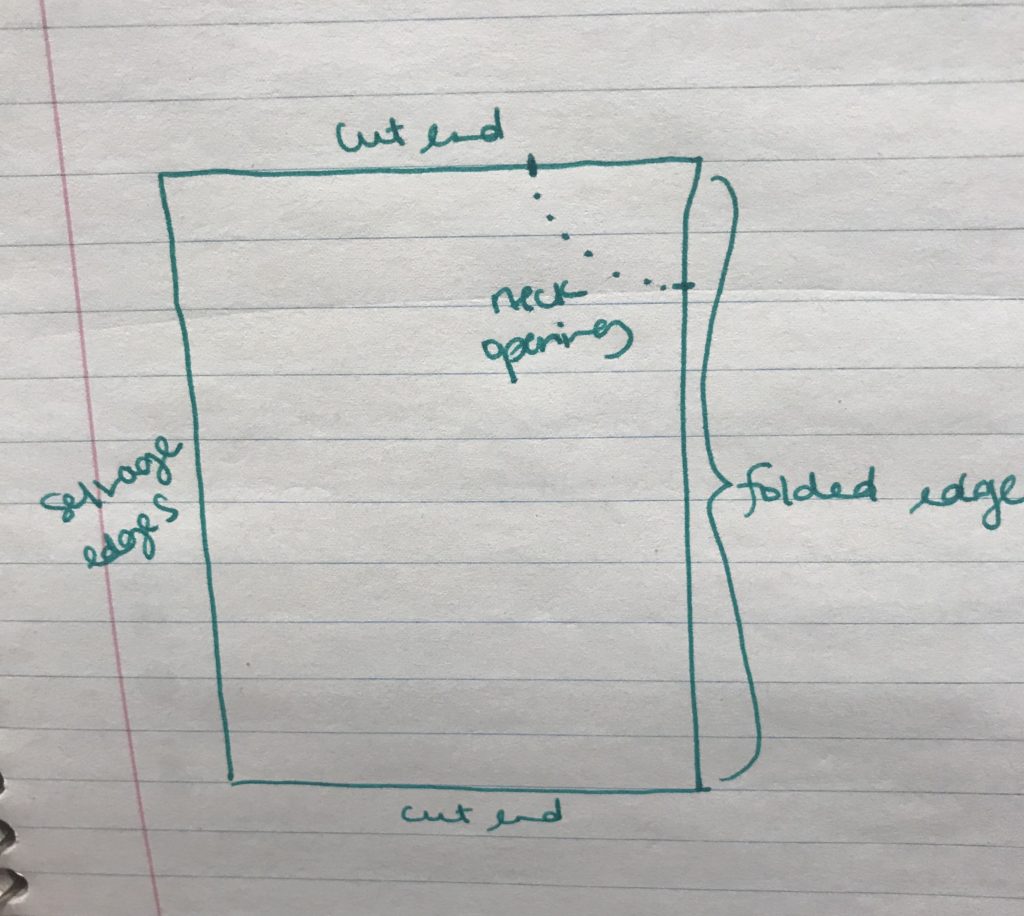 cut end
neck
opening
selvage
edges
folded edge
cut end